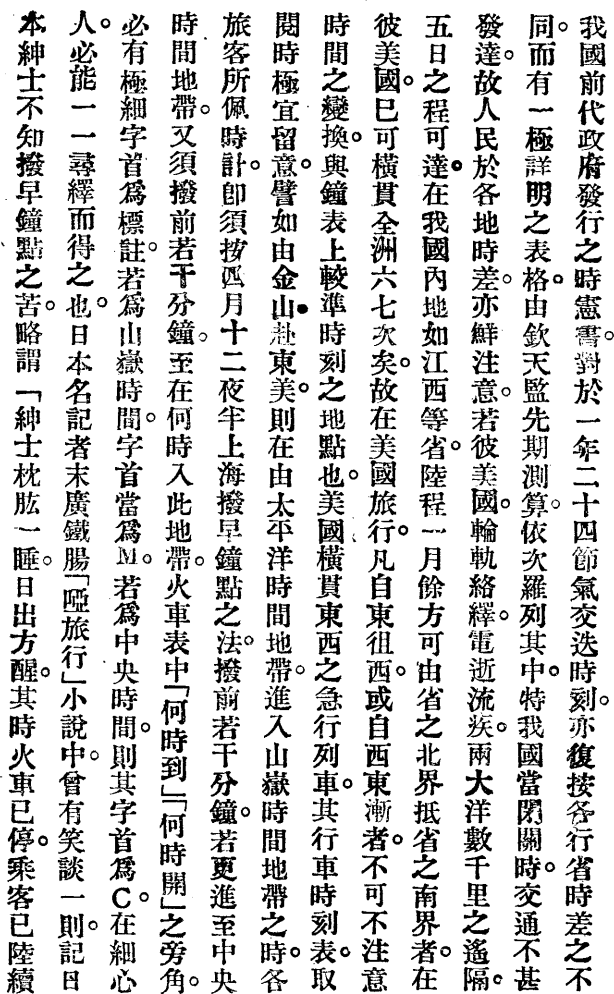 我國前代政府發行之時憲書。對於一年二十四節氣交迭時刻。亦復按各行省時差之不
同。而有一極詳明之表格。由欽天監先期測算。依次羅列其中。特我國當閉關時。交通不甚
發達。故人民於各地時差。亦鮮注意。若彼美國。輪軌絡繹。電逝流疾。兩大洋數千里之遙隔。
五日之程可達。在我國內地如江西等省。陸程一月餘方可由省之北界抵省之南界者。在
彼美國。已可橫貫全洲六七次矣。故在美國旅行。凡自東徂西。或自西東漸者。不可不注意
時間之變換。與鐘表上較準時刻之地點也。美國橫貫東西之急行列車。其行車時刻表。取
閱時極宜留意。譬如由金山赴東美。則在由太平洋時間地帶。進入山嶽時間地帶之時。各
旅客所佩時計。卽須按四月十二夜半上海撥早鐘點之法。撥前若干分鐘。若更進至中央
時間地帶。又須撥前若干分鐘。至在何時入此地帶。火車表中「何時到」「何時開」之旁角。
必有極細字首爲標註。若爲山嶽時間。字首當爲M。若爲中央時間。則其字首爲C。在細心
人。必能一一尋繹而得之也。日本名記者末廣鐵腸「啞旅行」小說中。曾有笑談一則。記日
本紳士不知撥早鐘點之苦。略謂「紳士枕肱一睡。日出方醒。其時火車已停。乘客已陸續